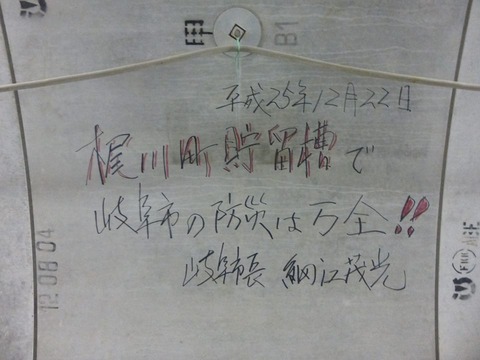 B1
平成25年12月22日
梶川町貯留槽で
岐阜市の防災は万全!!
岐阜市長 細江茂光
12 08 04